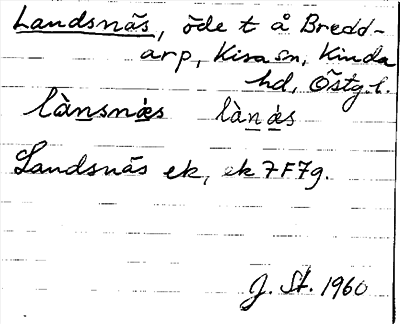 Landsnäs, öde t å Bredd-
arp, Kisa sn, Kinda
hd, Östg.l.
lànsnæ̀s lànæ̀s
Landsnäs ek, ek 7F7g.
J. St. 1960